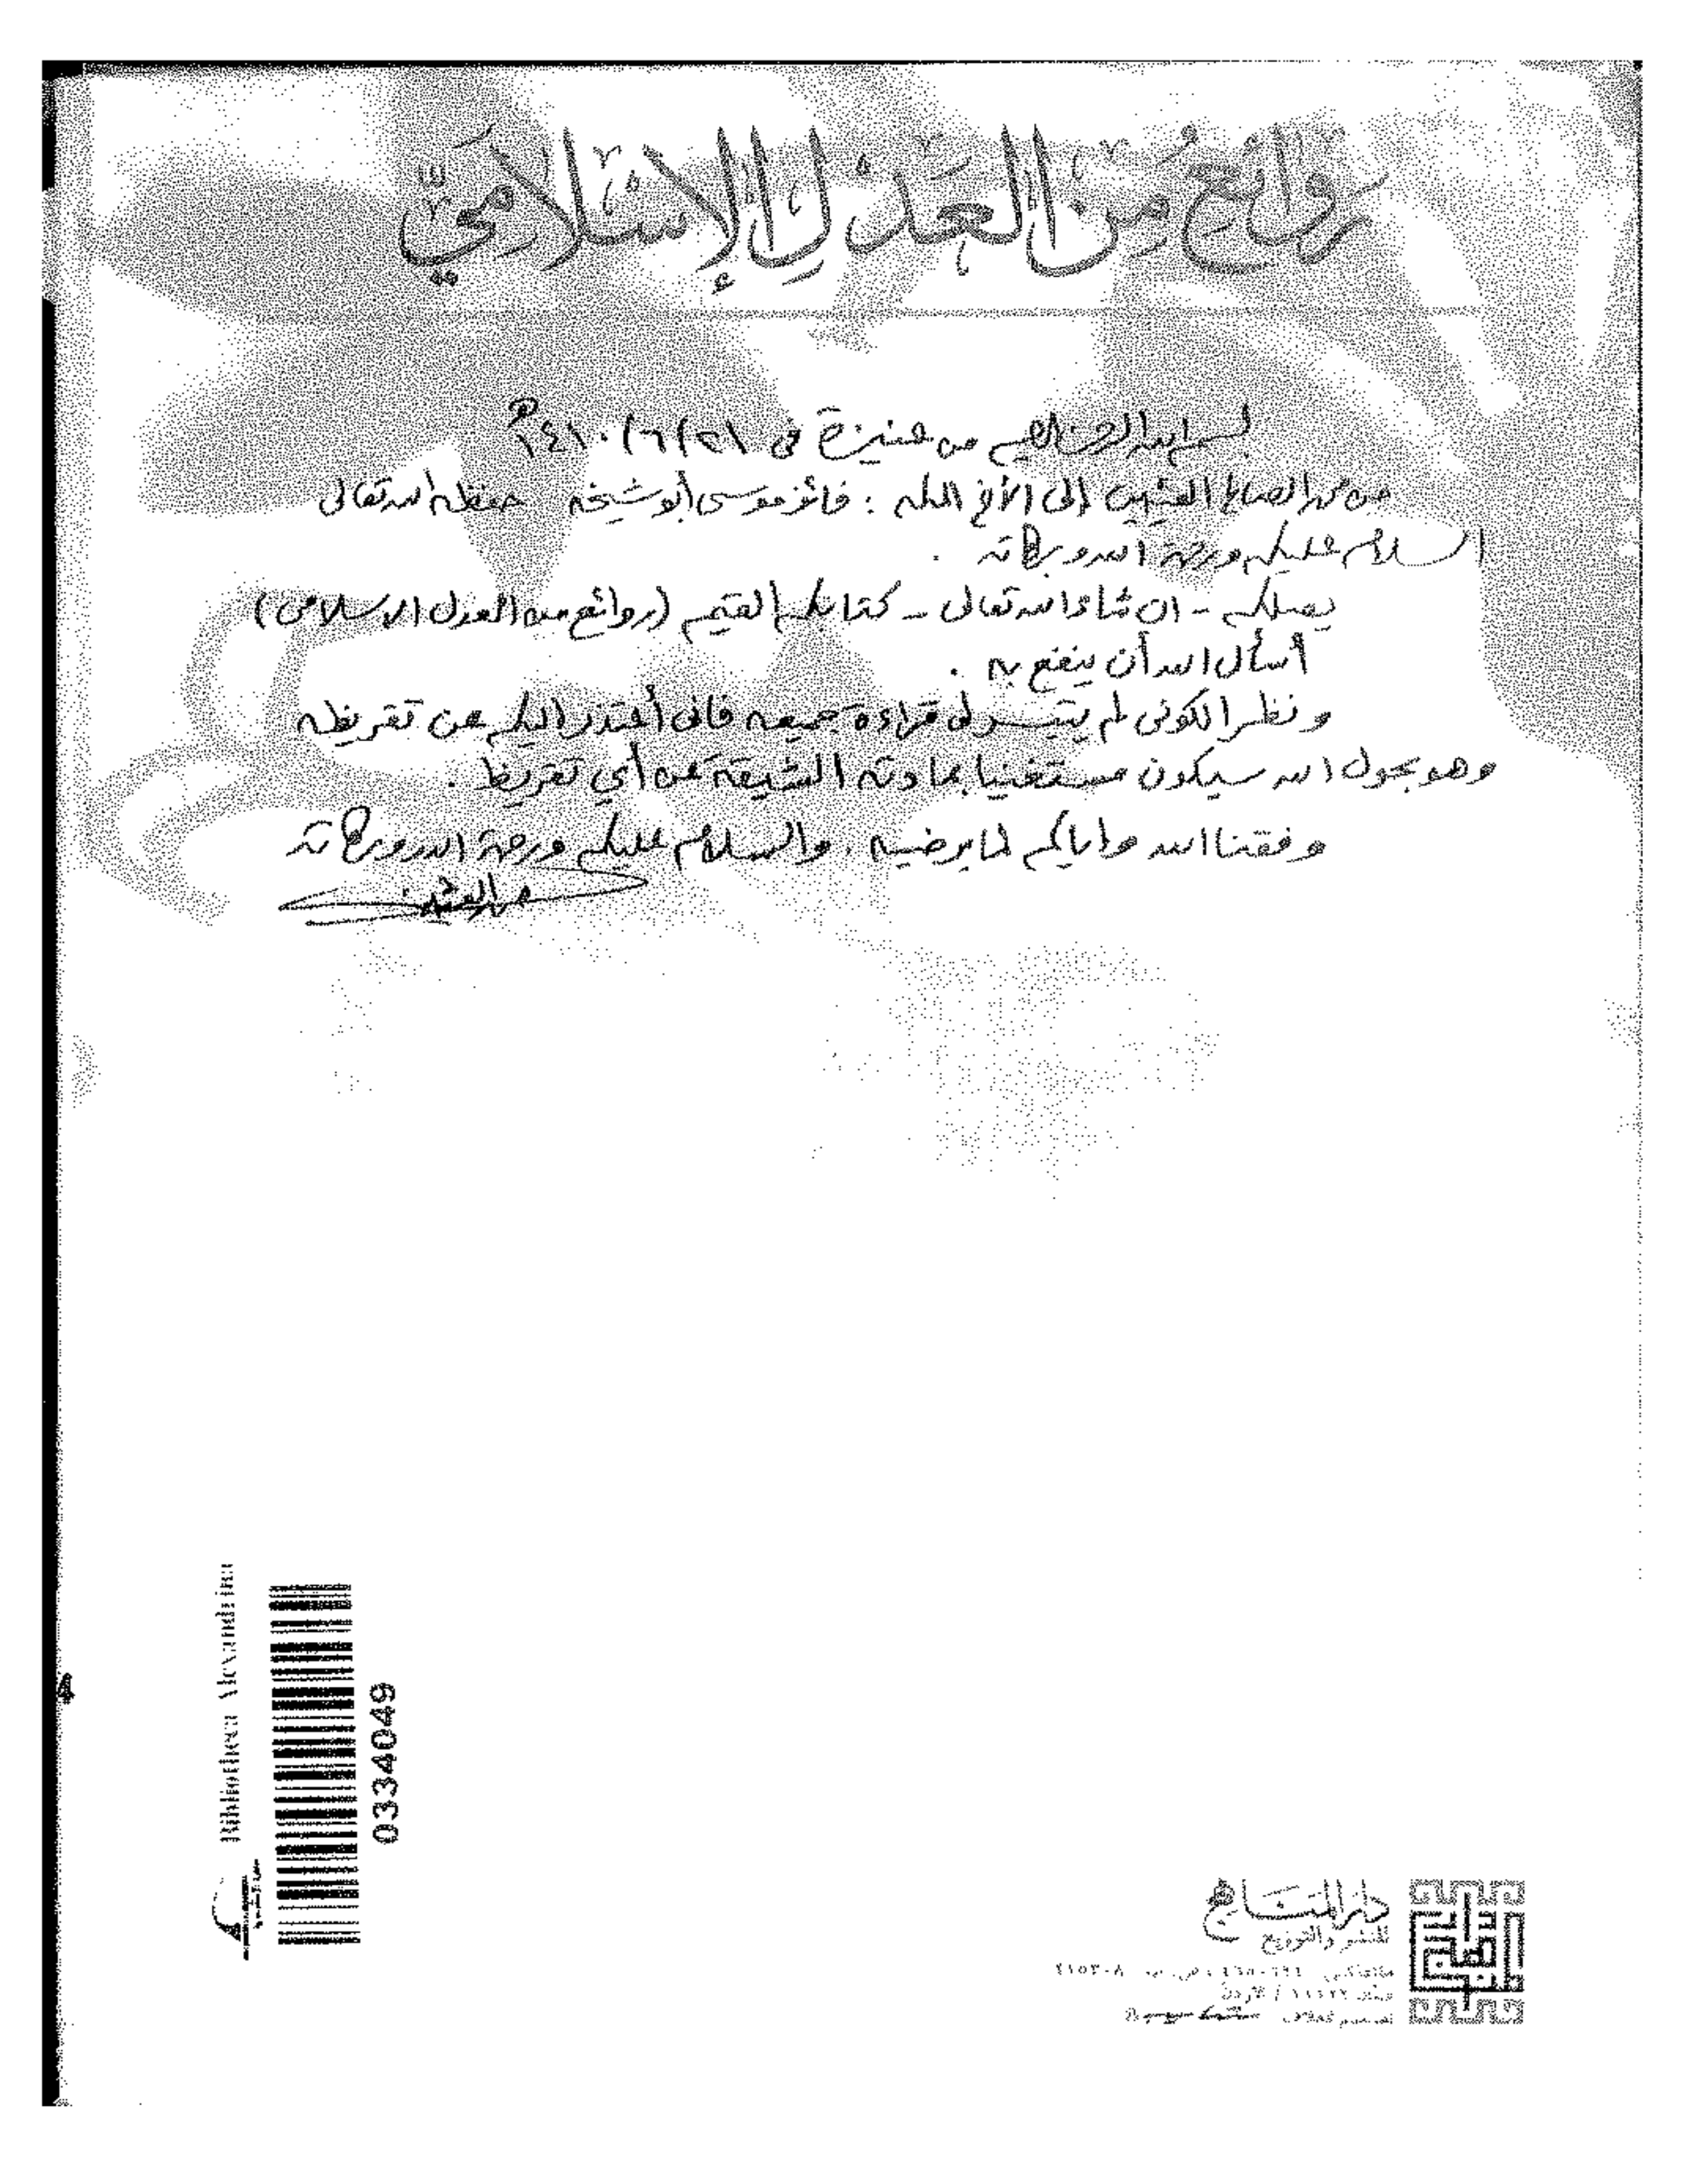 روائع من العدل الإسلامي
بسم الله الرحمن الرحيم من عنيزة في ٢١/٦/١٤١٠هـ
من محمد الصالح العثيمين إلى الأخ المكرم : فائز موسى أبو شيخه حفظه الله تعالى
السلام عليكم ورحمة الله وبركاته .
يصلكم - ان شاء الله تعالى - كتابكم القيم (روائع من العدل الاسلامي)
أسأل الله أن ينفع به .
ونظرا لكوني لم يتيسر لي قراءة جميعه فاني أعتذر اليكم عن تقريظه
وهو بحول الله سيكون مستغنيا بمادته الشيقة عن أي تقريظ .
وفقنا الله واياكم لما يرضيه . والسلام عليكم ورحمة الله وبركاته
محمد العثيمين
Bibliotheca Alexandrina
0334049
دار المناهج
للنشر والتوزيع